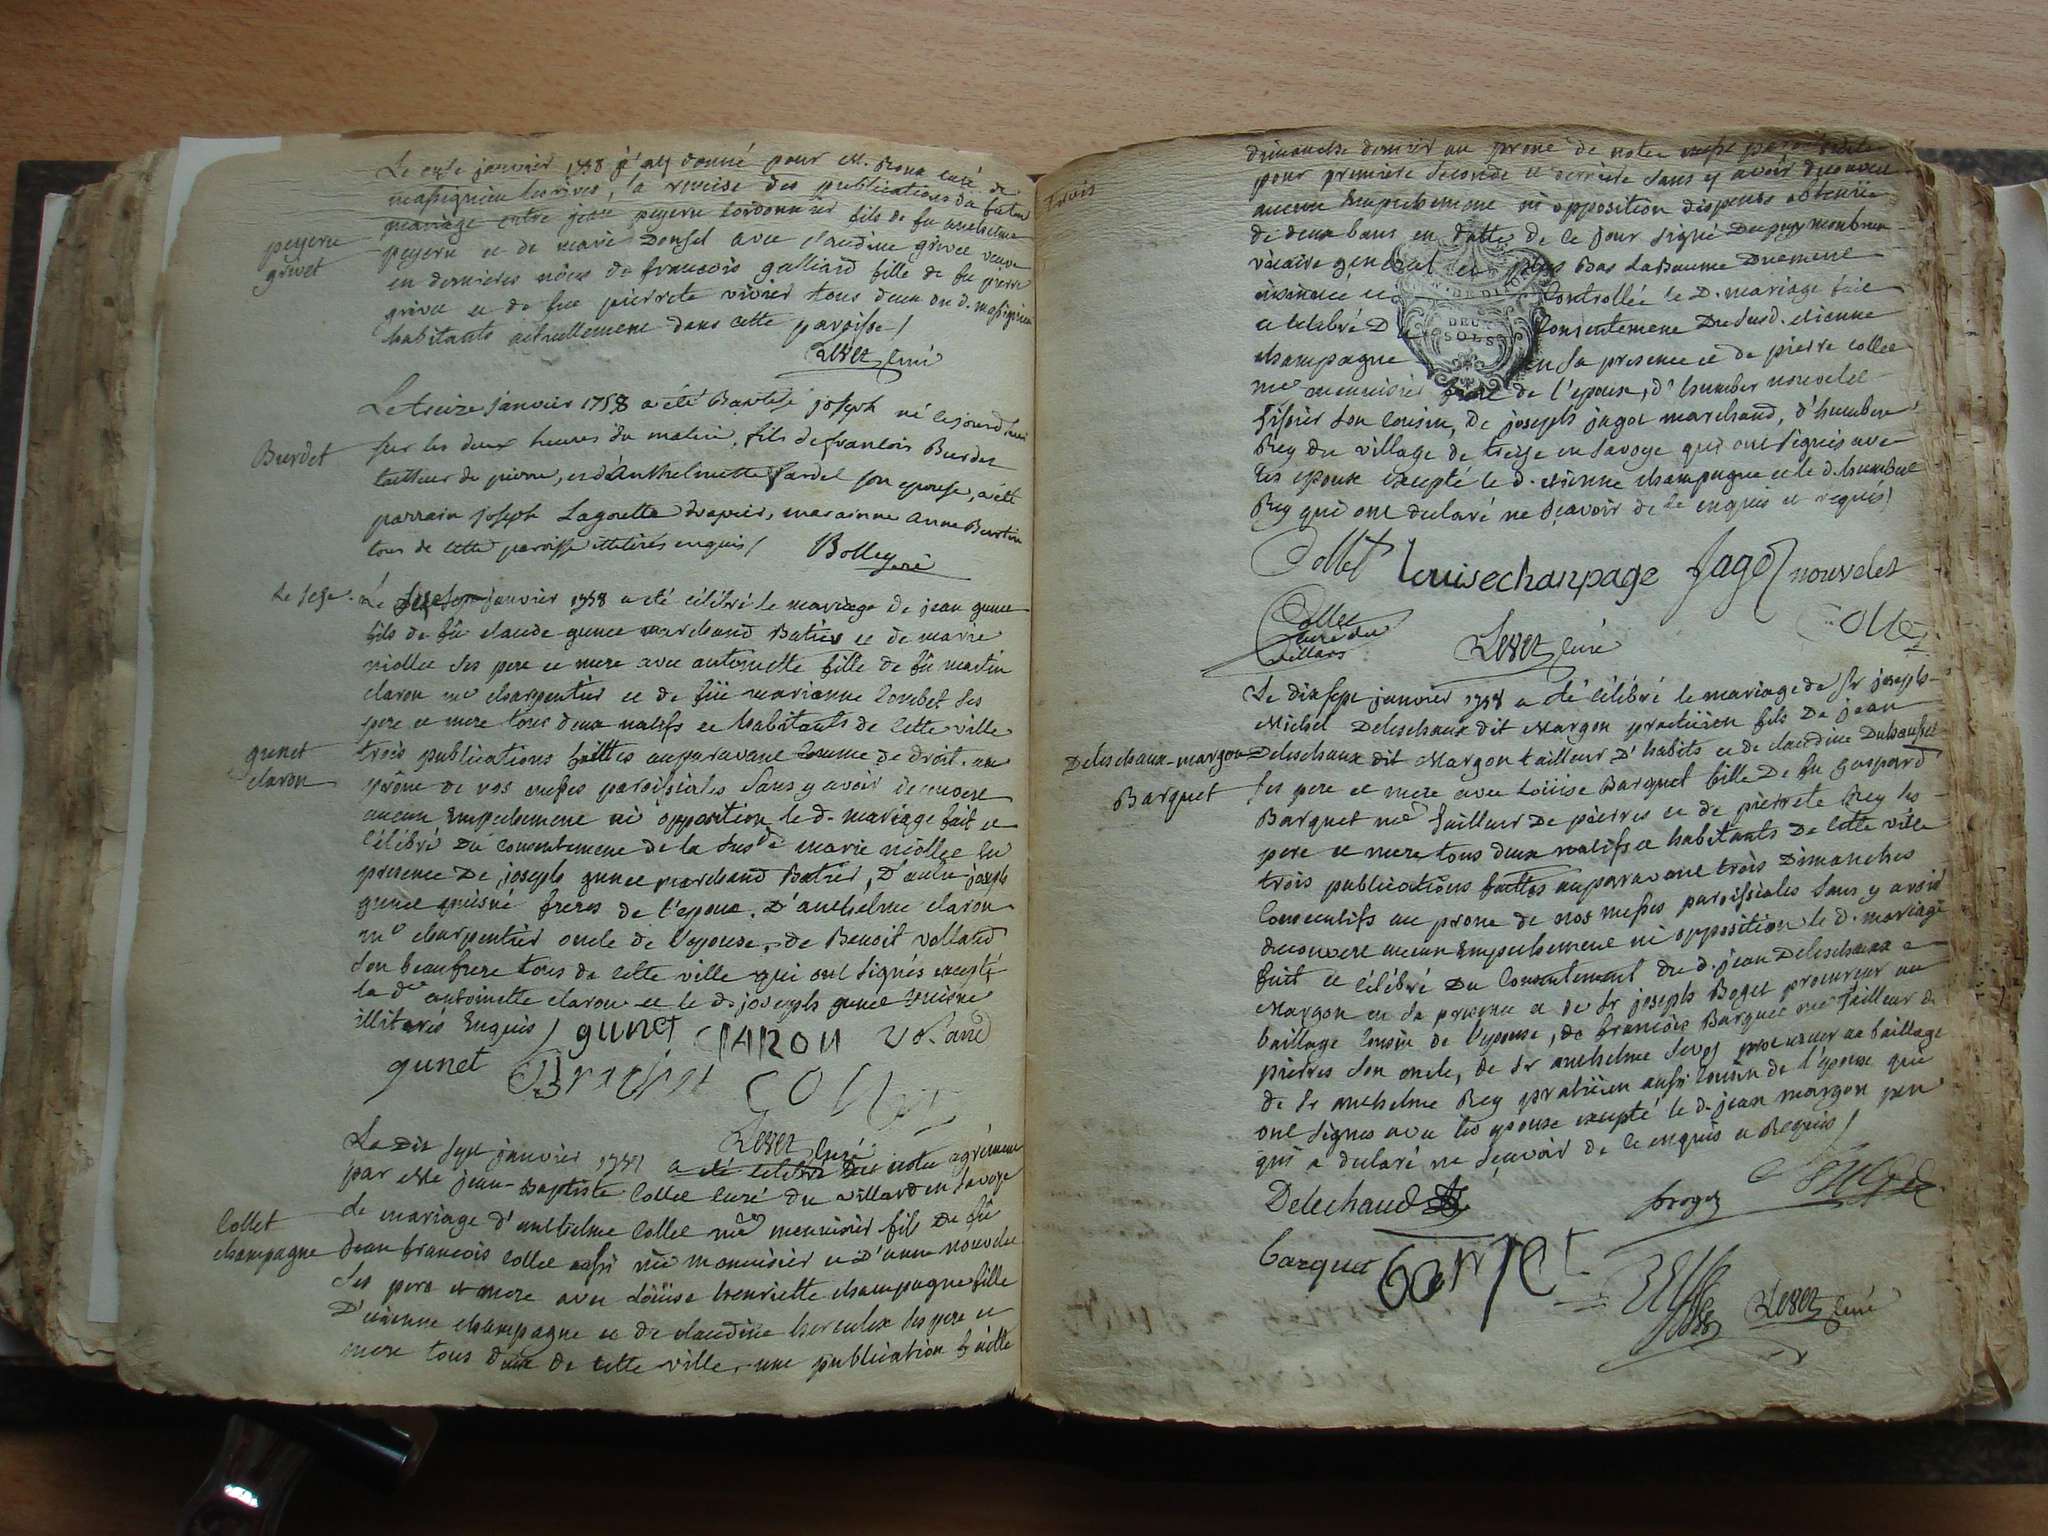 Le onze janvier 1758 j'ay donné pour M. curé de
massignieu les rives, la remise des publications du futur
mariage entre jean peyern cordonnier fils de fu anthelme
peyern et de marie Donsel avec claudine grivet veuve
en dernieres nôces de francois galliand fille de fu pierre
grivet et de fue pierrete vivier tous deux du d. massignieu
habitants actuellement dans cette paroisse /
peyern
grivet
curé
Le treize janvier 1758 a été Baptisé joseph né cejourd'hui
sur les deux heures du matin, fils de francois Burdet
tailleur de pierre, et d'Anthelmette Jardel son epouse, a été
parrain joseph Lagoutte drapier, maraine anne Burtin
tous de cette paroisse illiterés enquis /
Burdet
Le seze
Le janvier 1758 a été célébré le mariage de jean gunet
fils de fû claude gunet marchand Batier et de marie
niollet ses pere et mere avec antoinette fille de fû martin
claron me charpentier et de füe marianne Combet ses
pere et mere tous deux natifs et habitants de cette ville
trois publications faittes auparavant comme de droit au
prône de nos messes paroissiales sans y avoir decouvert
aucun Empechement ni opposition le d. mariage fait et
célébré du consentement de la susde marie niollet En
presence De joseph gunet marchand Batier, D'autre joseph
gunet puisné freres de l'epoux, D'anthelme claron
me charpentier oncle de l'epouse, de Benoit volland
son beaufrere tous de cette ville qui ont signés excepté
la de antoinette claron et le d. joseph gunet puisné
illiterés Enquis / gunet CLARON Voland
gunet
claron
gunet
curé
Le Dix sept janvier 1758 a été célébré De notre agrément
par Me jean-Baptiste Collet curé du villard en savoye
Le mariage d'anthelme Collet me menuisier fils De fû
Jean francois Collet aussi me menuisier et D'anne nouvelet
Ses pere et mere avec Loüise henriette champagne fille
D'etienne champagne et de claudine herculex ses pere et
mere tous deux de cette ville, une publication faitte
Collet
champagne
Trois
dimanche dernier au prone de notre messe paroissiale
pour premiere seconde et derniere sans y avoir decouvert
aucun Empechement ni opposition dispense obtenüe
de deux bans en datte de ce jour signé
vicaire general et plus Bas LaBaume Düement
insinuée et Controllée le D. mariage fait
et celebré Du Consentement Du susd. etienne
champagne en sa presence et de pierre collet
me menuisier frere de l'epoux, d'humber nouvelet
son cousin, de joseph jagot marchand, d'humbert
Rey du village de en savoye qui ont signés avec
les epoux excepté le d. etienne champagne et le d. humbert
Rey qui ont declaré ne sçavoir de ce enquis et requis /
DEUX
SOLS
Collet louisechanpage Jagot nouvelet
Collet
curé du
villars
curé
Collet
Le dix sept janvier 1758 a été célébré le mariage de sr joseph
Michel Deleschaux dit Margon practicien fils De jean
Deleschaux dit Margon tailleur D'habits et de claudine
Ses pere et mere avec Loüise Barquet fille De fu Gaspard
Barquet me Tailleur De pierres et de pierrete Rey ses
pere et mere tous deux natifs et habitants De cette ville
trois publications faittes auparavant trois Dimanches
Consecutifs au prone de nos messes paroissiales sans y avoir
decouvert aucun Empechement ni opposition le d. mariage
fait et célébré Du Consentement du d. jean Deleschaux
Margon en sa presence et de sr joseph Boget procureur au
baillage cousin de l'epouse, de francois Barquet me Tailleur de
pierres son oncle, de sr anthelme procureur au baillage
de sr anthelme Rey praticien aussi cousin de l'epouse qui
ont signés avec les epoux excepté le d. jean margon pere
qui a declaré ne sçavoir de ce enquis et Requis /
Deleschaux-margon
Barquet
Delechaud
barquet
curé